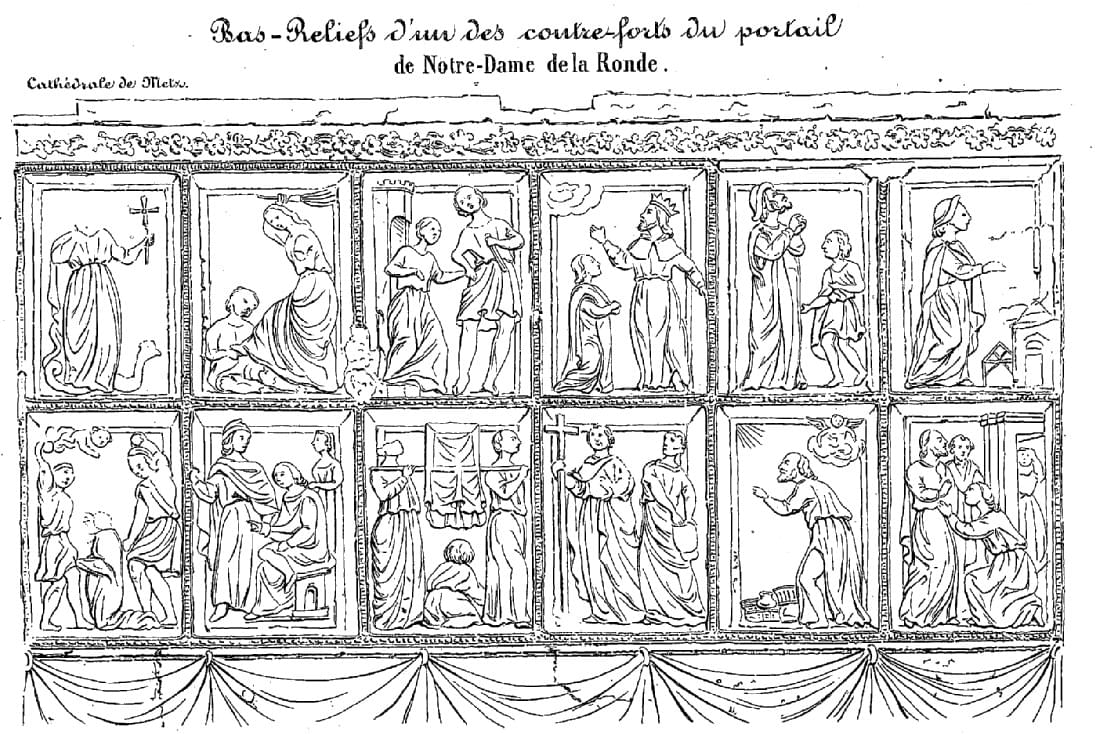 Bas-Reliefs d'un des contre-forts du portail
de Notre-Dame de la Ronde.
Cathédrale de Metz.